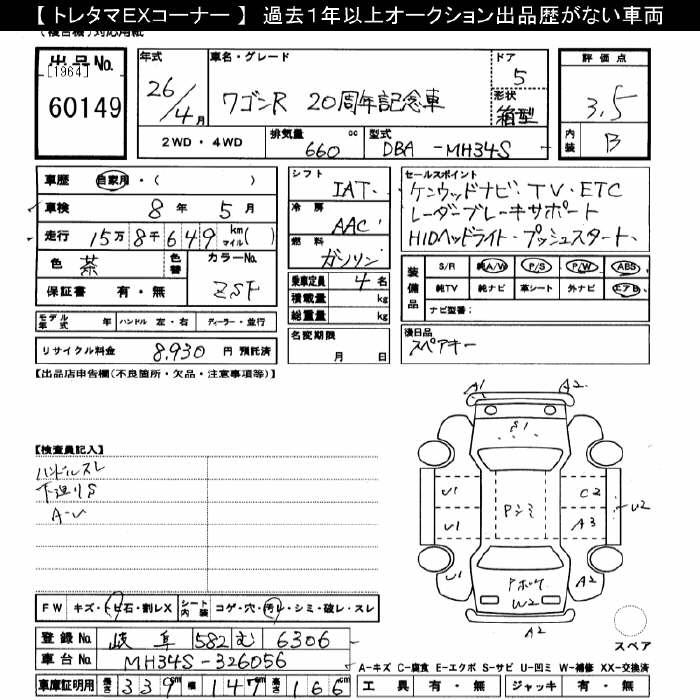 【 トレタマEXコーナー 】 過去1年以上オークション出品歴がない車両
出品No.
[1964]
60149
年式
26/4月
車名・グレード
ワゴンR 20周年記念車
ドア
5
形状
箱型
2WD・4WD
排気量
660 cc
型式
DBA-MH34S
評価点
3.5
内装
B
車歴 自家用・( )
車検 8年 5月
走行 15万8千649 km マイル( )
色 茶
色替
カラーNo.
ZSF
保証書 有・無
シフト
IAT
冷房
AAC
燃料
ガソリン
乗車定員 4名
積載量 kg
総重量 kg
セールスポイント
ケンウッドナビ・TV・ETC
レーダーブレーキサポート
HIDヘッドライト・プッシュスタート
装備品
S/R 純A/W P/S P/W ABS
純TV 純ナビ 革シート 外ナビ エアB
ナビ型番:
モデル年式 年 ハンドル 左・右 ディーラー・並行
リサイクル料金 8,930 円 預託済
名変期限
月 日
後日品
スペアキー
【出品店申告欄(不良箇所・欠品・注意事項等)】
【検査員記入】
ハンドルスレ
下廻りS
A-U
A1 A2
S1
U1 C2
U2
U1 Pシミ A3
U1 A2
W2
A2
スペア
FW キズ・トビ石・割レX シート内装 コゲ・穴・汚レ・シミ・破レ・スレ
登録No. 岐阜 582 む 6306
車台No. MH34S-326056
車庫証明用 長さ 339 cm 幅 147 cm 高さ 166 cm
A-キズ C-腐食 E-エクボ S-サビ U-凹ミ W-補修 XX-交換済
工具 有・無 ジャッキ 有・無